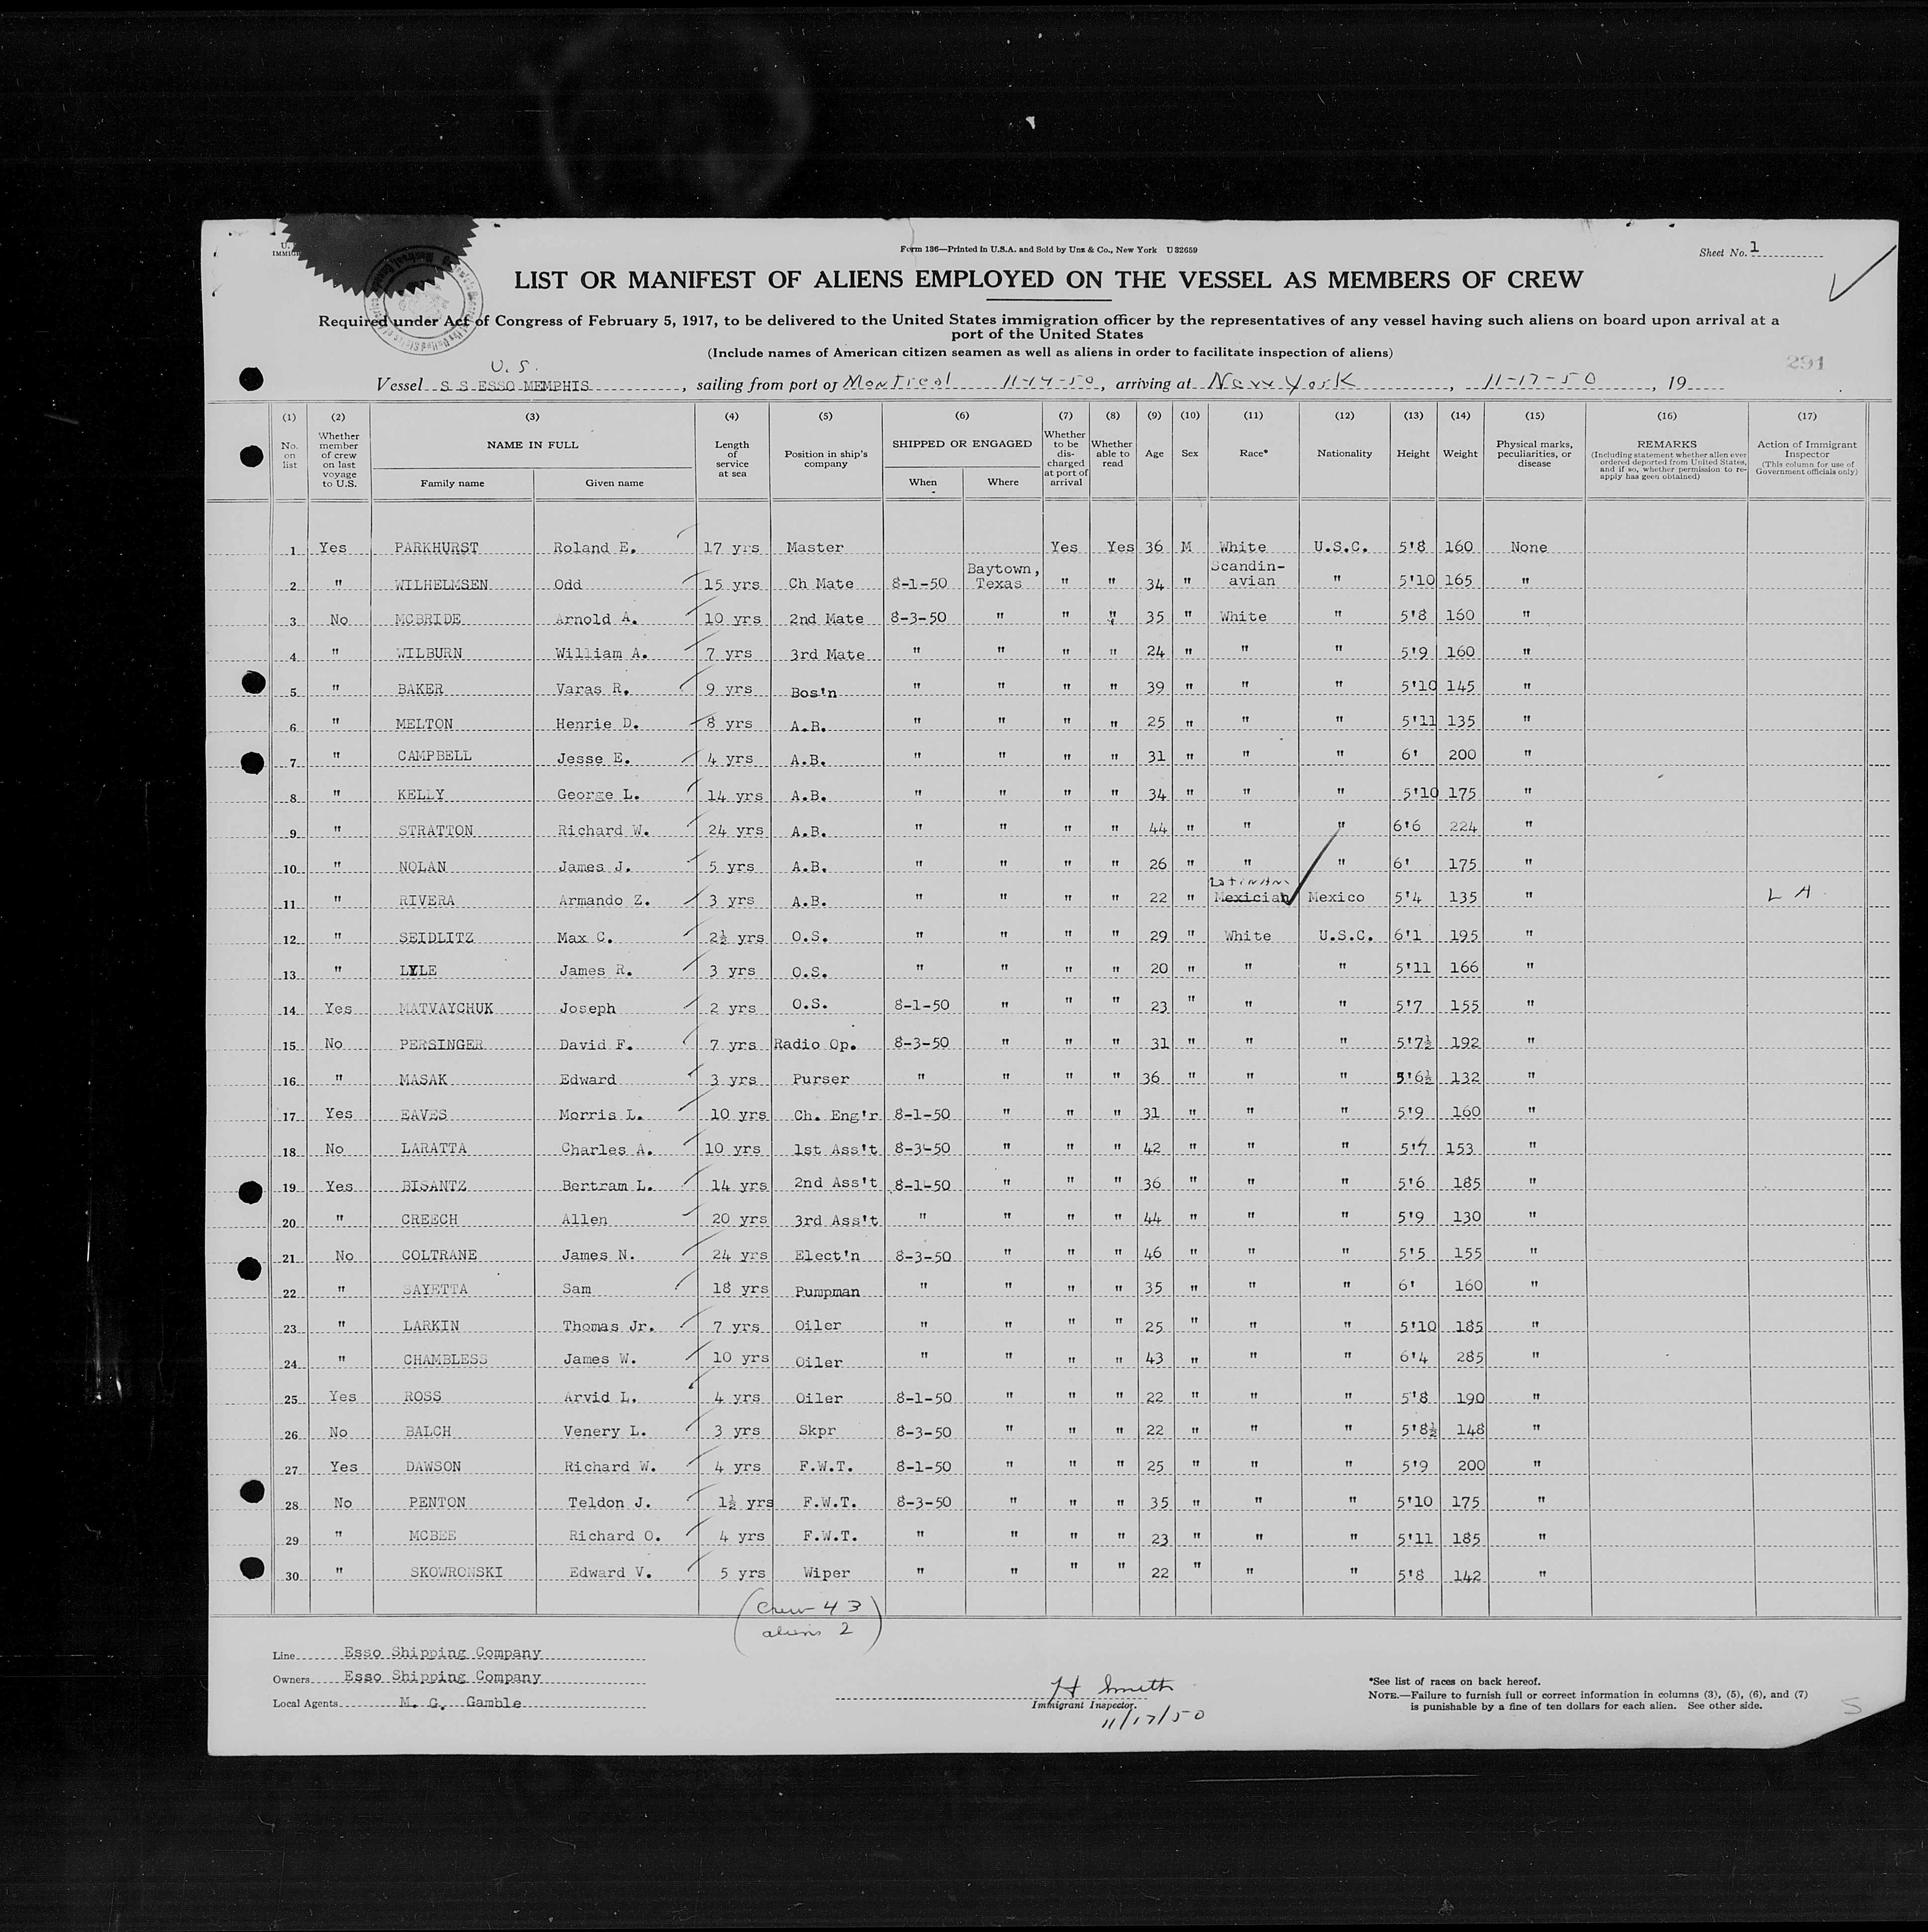 Form 136—Printed in U.S.A. and Sold by Unz & Co., New York U 32659
Sheet No. 1
LIST OR MANIFEST OF ALIENS EMPLOYED ON THE VESSEL AS MEMBERS OF CREW
Required under Act of Congress of February 5, 1917, to be delivered to the United States immigration officer by the representatives of any vessel having such aliens on board upon arrival at a
port of the United States
(Include names of American citizen seamen as well as aliens in order to facilitate inspection of aliens)
291
U. S.
Vessel S S ESSO MEMPHIS, sailing from port of Montreal 11-14-50, arriving at New York, 11-17-50, 19
(1) (2) (3) (4) (5) (6) (7) (8) (9) (10) (11) (12) (13) (14) (15) (16) (17)
No. on list
Whether member of crew on last voyage to U.S.
NAME IN FULL
Family name Given name
Length of service at sea
Position in ship's company
SHIPPED OR ENGAGED
When Where
Whether to be discharged at port of arrival
Whether able to read
Age Sex Race* Nationality Height Weight
Physical marks, peculiarities, or disease
REMARKS
(Including statement whether alien ever ordered deported from United States, and if so, whether permission to reapply has geen obtained)
Action of Immigrant Inspector
(This column for use of Government officials only)
1 Yes PARKHURST Roland E. 17 yrs Master Yes Yes 36 M White U.S.C. 5'8 160 None
2 " WILHELMSEN Odd 15 yrs Ch Mate 8-1-50 Baytown, Texas " " 34 " Scandin-avian " 5'10 165 "
3 No MCBRIDE Arnold A. 10 yrs 2nd Mate 8-3-50 " " " 35 " White " 5'8 160 "
4 " WILBURN William A. 7 yrs 3rd Mate " " " " 24 " " " 5'9 160 "
5 " BAKER Varas R. 9 yrs Bos'n " " " " 39 " " " 5'10 145 "
6 " MELTON Henrie D. 8 yrs A.B. " " " " 25 " " " 5'11 135 "
7 " CAMPBELL Jesse E. 4 yrs A.B. " " " " 31 " " " 6' 200 "
8 " KELLY George L. 14 yrs A.B. " " " " 34 " " " 5'10 175 "
9 " STRATTON Richard W. 24 yrs A.B. " " " " 44 " " " 6'6 224 "
10 " NOLAN James J. 5 yrs A.B. " " " " 26 " " " 6' 175 "
11 " RIVERA Armando Z. 3 yrs A.B. " " " " 22 " Latin Am Mexician Mexico 5'4 135 " L A
12 " SEIDLITZ Max C. 2½ yrs O.S. " " " " 29 " White U.S.C. 6'1 195 "
13 " LYLE James R. 3 yrs O.S. " " " " 20 " " " 5'11 166 "
14 Yes MATVAYCHUK Joseph 2 yrs O.S. 8-1-50 " " " 23 " " " 5'7 155 "
15 No PERSINGER David F. 7 yrs Radio Op. 8-3-50 " " " 31 " " " 5'7½ 192 "
16 " MASAK Edward 3 yrs Purser " " " " 36 " " " 5'6½ 132 "
17 Yes EAVES Morris L. 10 yrs Ch. Eng'r 8-1-50 " " " 31 " " " 5'9 160 "
18 No LARATTA Charles A. 10 yrs 1st Ass't 8-3-50 " " " 42 " " " 5'7 153 "
19 Yes BISANTZ Bertram L. 14 yrs 2nd Ass't 8-1-50 " " " 36 " " " 5'6 185 "
20 " CREECH Allen 20 yrs 3rd Ass't " " " " 44 " " " 5'9 130 "
21 No COLTRANE James N. 24 yrs Elect'n 8-3-50 " " " 46 " " " 5'5 155 "
22 " SAYETTA Sam 18 yrs Pumpman " " " " 35 " " " 6' 160 "
23 " LARKIN Thomas Jr. 7 yrs Oiler " " " " 25 " " " 5'10 185 "
24 " CHAMBLESS James W. 10 yrs Oiler " " " " 43 " " " 6'4 285 "
25 Yes ROSS Arvid L. 4 yrs Oiler 8-1-50 " " " 22 " " " 5'8 190 "
26 No BALCH Venery L. 3 yrs Skpr 8-3-50 " " " 22 " " " 5'8½ 148 "
27 Yes DAWSON Richard W. 4 yrs F.W.T. 8-1-50 " " " 25 " " " 5'9 200 "
28 No PENTON Teldon J. 1½ yrs F.W.T. 8-3-50 " " " 35 " " " 5'10 175 "
29 " MCBEE Richard O. 4 yrs F.W.T. " " " " 23 " " " 5'11 185 "
30 " SKOWRONSKI Edward V. 5 yrs Wiper " " " " 22 " " " 5'8 142 "
(Crew 43
aliens 2)
Line Esso Shipping Company
Owners Esso Shipping Company
Local Agents M. G. Gamble
H Smith
Immigrant Inspector.
11/17/50
*See list of races on back hereof.
NOTE.—Failure to furnish full or correct information in columns (3), (5), (6), and (7)
is punishable by a fine of ten dollars for each alien. See other side.
5